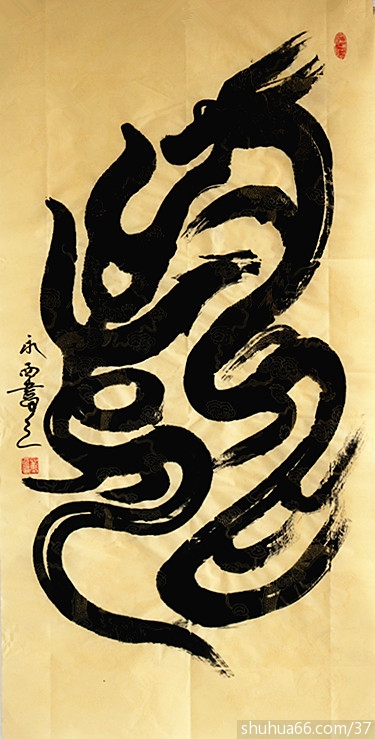 龍
永西書之
shuhua66.com/37